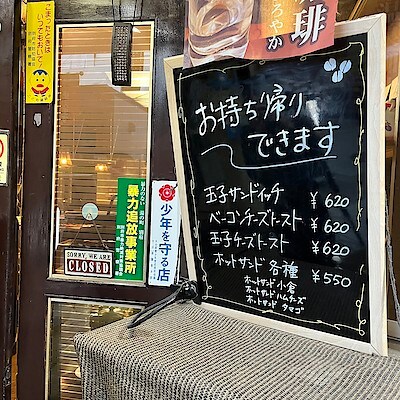 こまったときは
いつでもおいで
琲
ろやか
お持ち帰り
できます
玉子サンドイッチ ¥620
ベーコンチーズトースト ¥620
玉子チーズトースト ¥620
ホットサンド各種 ¥550
ホットサンド 小倉
ホットサンド ハムチーズ
ホットサンド タマゴ
暴力追放事業所
少年を守る店
SORRY, WE ARE
CLOSED